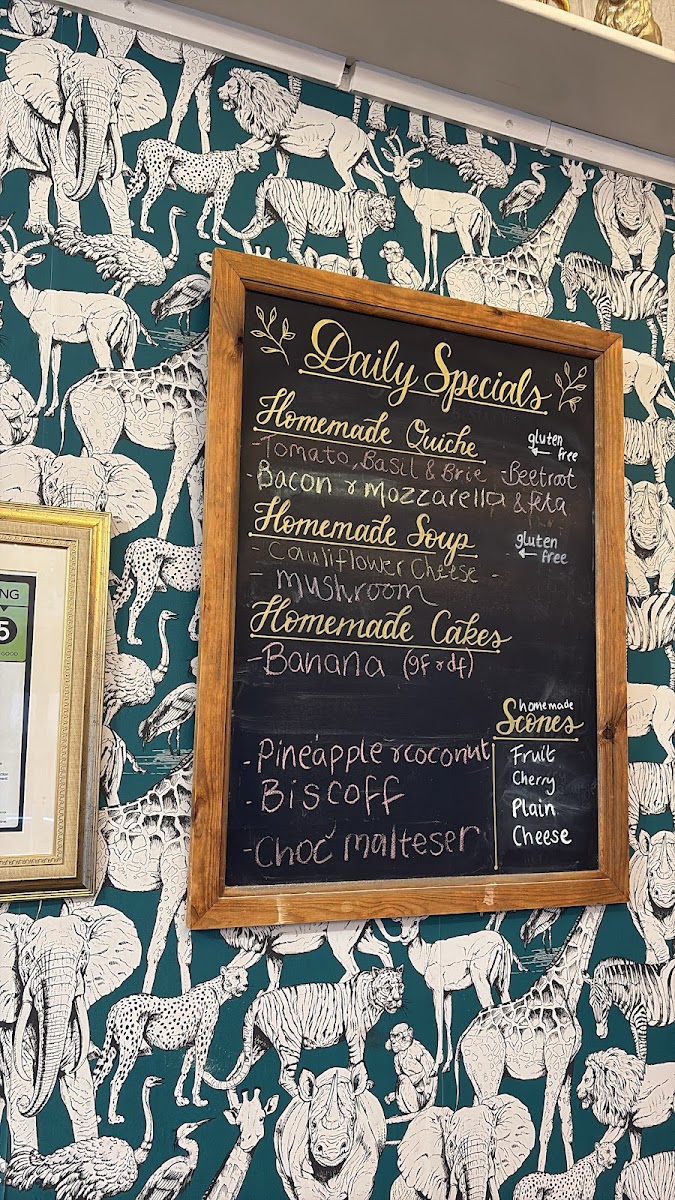 Daily Specials
Homemade Quiche
gluten
← free
- Tomato, Basil & Brie - Beetroot
- Bacon & Mozzarella & feta
Homemade Soup
gluten
← free
- Cauliflower Cheese -
- Mushroom
Homemade Cakes
- Banana (gf & df)
- Pineapple & coconut
- Biscoff
- Choc malteser
homemade
Scones
Fruit
Cherry
Plain
Cheese
NG
5
GOOD